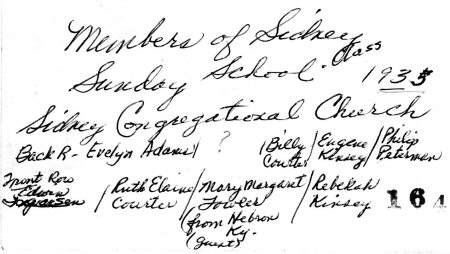 Members of Sidney
Sunday School Class 1935
Sidney Congregational Church
Back R - Evelyn Adams / ? / Billy Courter / Eugene Kinsey / Philip Peterman
Front Row
Edwin
/ Ruth Elaine Courter / Mary Margaret Fowler (from Hebron Ky. (guest) / Rebekah Kinsey
164